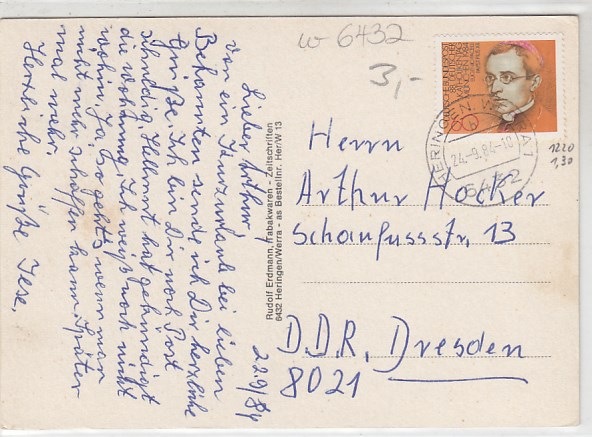 w 6432
3,-
Lieber Arthur,
22.9/84
von ein Kurzurlaub bei lieben
Bekannten sende ich Dir herzliche
Grüße. Ich bin Dir noch Post
schuldig. Hellmut hat gekündigt
die Wohnung. Ich weiß noch nicht
wohin. Ja, so geht's wenn man
nicht mehr schaffen kann. Später
mal mehr.
Herzliche Grüße Jese.
Rudolf Erdmann, Tabakwaren - Zeitschriften
6432 Heringen/Werra - as Bestellnr. Her/W 13
DEUTSCHE BUNDESPOST
88. DEUTSCHER
KATHOLIKENTAG
MÜNCHEN 1984
60
HERINGEN, WERRA 1
24.-9.84-12
6432
1220
1,30
Herrn
Arthur Hocker
Schaufussstr. 13
D.D.R. Dresden
8021